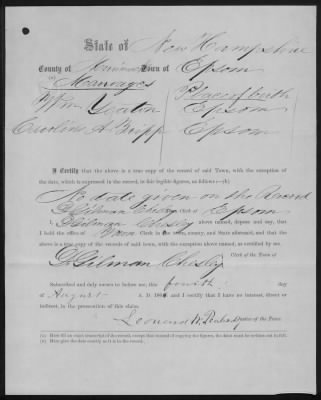 State of New Hampshire
County of Merrimack Town of Epsom
(a) Marriages Place of birth
Wm Yeaton Epsom
Caroline A. Tripp Epsom
I Certify that the above is a true copy of the record of said Town, with the exception of
the date, which is expressed in the record, in fair legible figures, as follows:—(b)
No date given on the Record
D. Gilman Chesley Clerk of Epsom
I, D. Gilman Chesley above named, depose and say, that
I hold the office of Town Clerk in the town, county, and State aforesaid, and that the
above is a true copy of the records of said town, with the exception above named, as certified by me.
D. Gilman Chesley Clerk of the Town of
Subscribed and duly sworn to before me, this fourth day
of August A. D. 186 and I certify that I have no interest, direct or
indirect, in the prosecution of this claim.
Leonard W. Justice of the Peace
(a) Here fill an exact transcript of the record, except that instead of copying the figures, the date must be written out in full.
(b) Here give the date exactly as it is in the record.